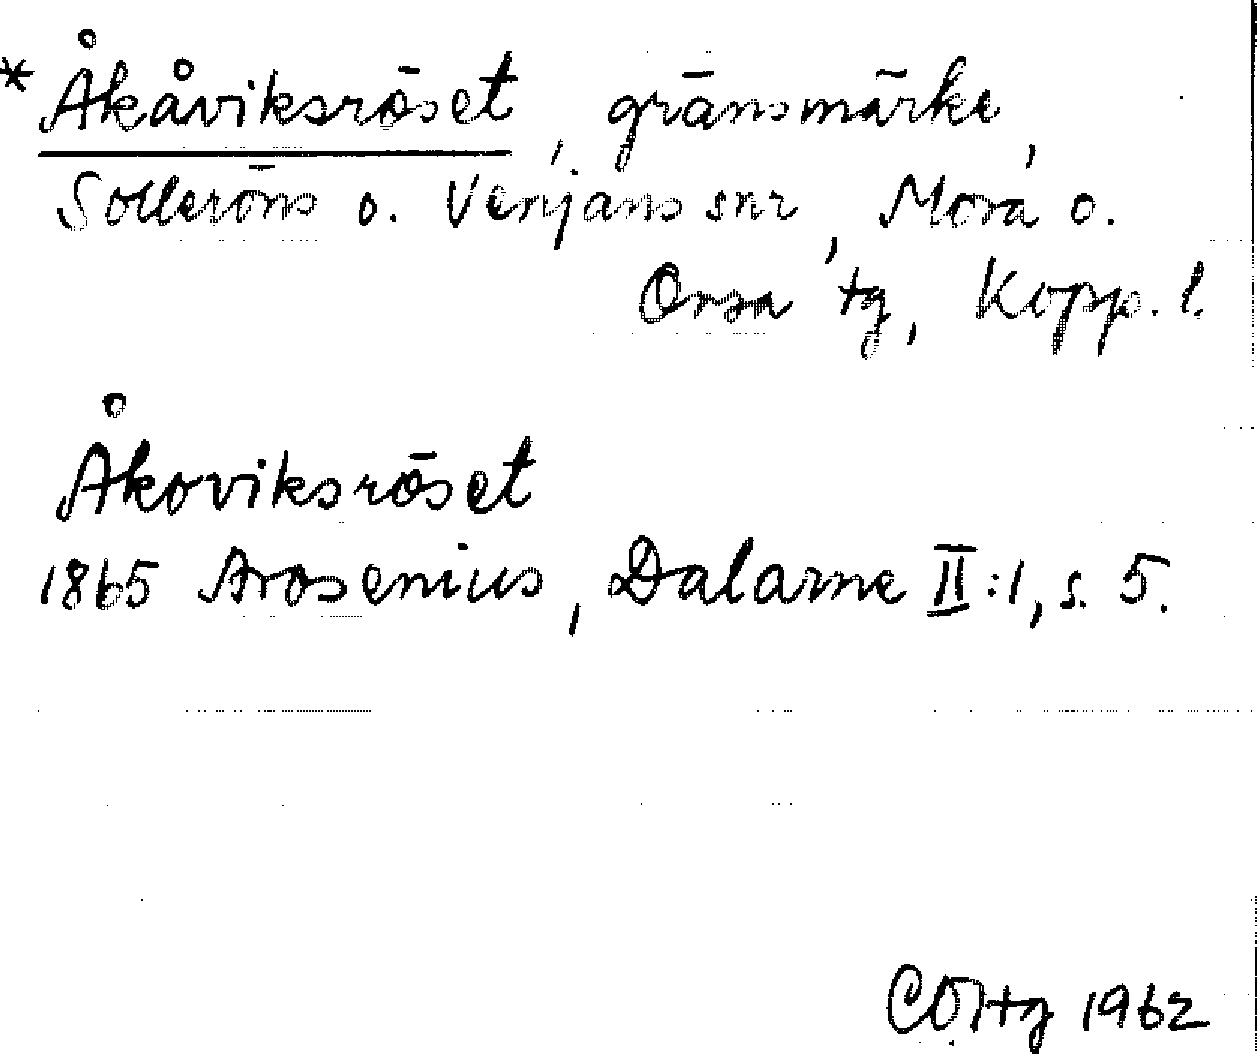 * Åkåviksröset, gränsmärke,
Solleröns o. Venjans snr, Mora o.
Orsa tg, Kopp. l.
Åkoviksröset
1865 Arosenius, Dalarne II:1, s. 5.
1962